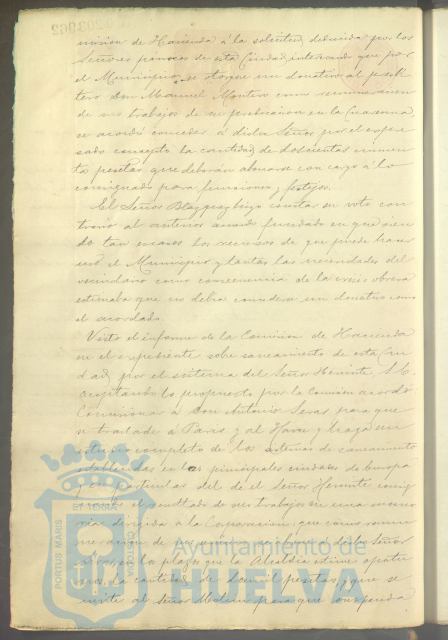 misión de Hacienda á la solicitud deducida por los
Señores párrocos de esta Ciudad, interesando que por
el Municipio se otorgue un donativo al presbí-
tero don Manuel Montero como remuneración
de sus trabajos de su predicación en la Cuaresma,
se acordó conceder á dicho Señor por el expre-
sado concepto la cantidad de doscientas cincuen-
ta pesetas que deberán abonarse con cargo á lo
consignado para funciones y festejos.
El Señor Blazquez hizo constar su voto con-
trario al anterior acuerdo fundado en que sien-
do tan escasos los recursos de que puede hacer
uso el Municipio y tantas las necesidades del
vecindario como consecuencia de la crisis obrera
estimaba que no debía concederse un donativo como
el acordado.
Visto el informe de la Comisión de Hacienda
en el expediente sobre saneamiento de esta Ciu-
dad, por el sistema del Señor S. E.
aceptando lo propuesto por la Comisión acordó
Comisionar á Don Antonio para que
se traslade á Paris y al Havre y haga un
estudio completo de los sistemas de saneamiento
establecidos en las principales ciudades de Europa
y en particular del de el Señor
el resultado de sus trabajos en una memo-
ria dirigida á la Corporación, que como remu-
neración de sus á dicho Señor
plazo que la Alcaldía estime oportu-
no, la cantidad de dos mil pesetas, y que se
invite al Señor para que suspenda
PORTUS MARIS
ET TERRAE
CUSTODIA
Ayuntamiento de
HUELVA